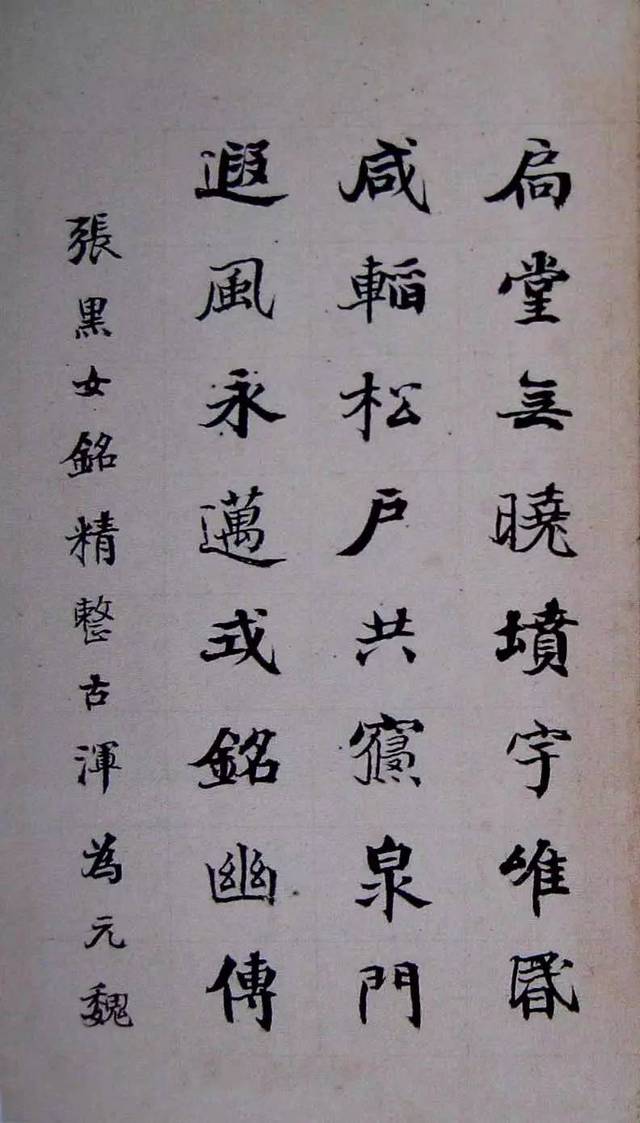 扃堂無曉墳宇唯昬
咸轁松户共寢泉門
遐風永邁式銘幽傳
張黑女銘精整古渾為元魏